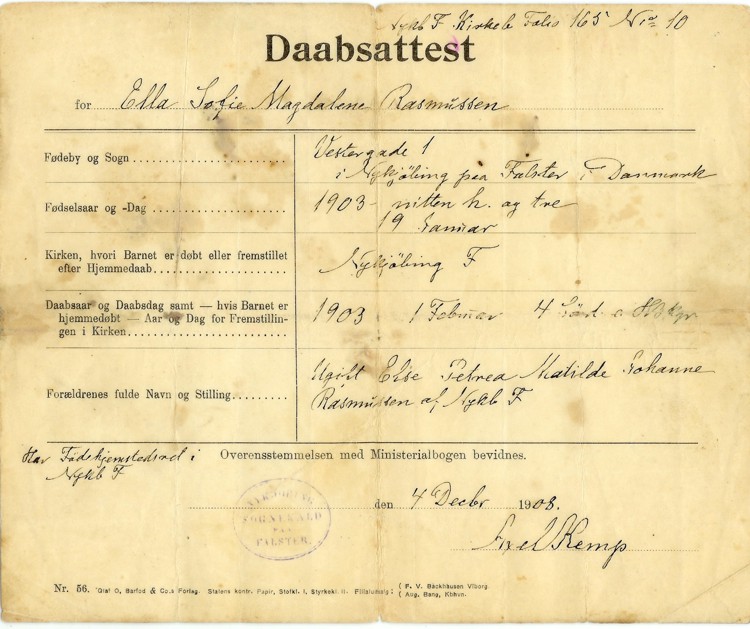 Nykb F Kirkeb Folio 165 No 10
Daabsattest
for Ella Sofie Magdalene Rasmussen
Fødeby og Sogn
Vestergade 1
i Nykjöbing paa Falster i Danmark
Fødselsaar og -Dag
1903 - nitten h. og tre
19 Januar
Kirken, hvori Barnet er døbt eller fremstillet
efter Hjemmedaab
Nykjöbing F
Daabsaar og Daabsdag samt — hvis Barnet er
hjemmedøbt — Aar og Dag for Fremstillin-
gen i Kirken
1903 1 Februar 4 Sönd e
Forældrenes fulde Navn og Stilling
Ugift Else Petrea Matilde Johanne
Rasmussen af Nykb F
Har Födehjemstedsret i
Nykb F
Overensstemmelsen med Ministerialbogen bevidnes.
NYKJØBING
SOGNEKALD
PAA
FALSTER.
den 4 Decbr 1908.
Axel Kemp
Nr. 56. Graf O, Barfod & Co.s Forlag. Statens kontr. Papir, Stofkl. I, Styrkekl. II. Filialudsalg: ( F. V. Backhausen Viborg
( Aug. Bang, Kbhvn.